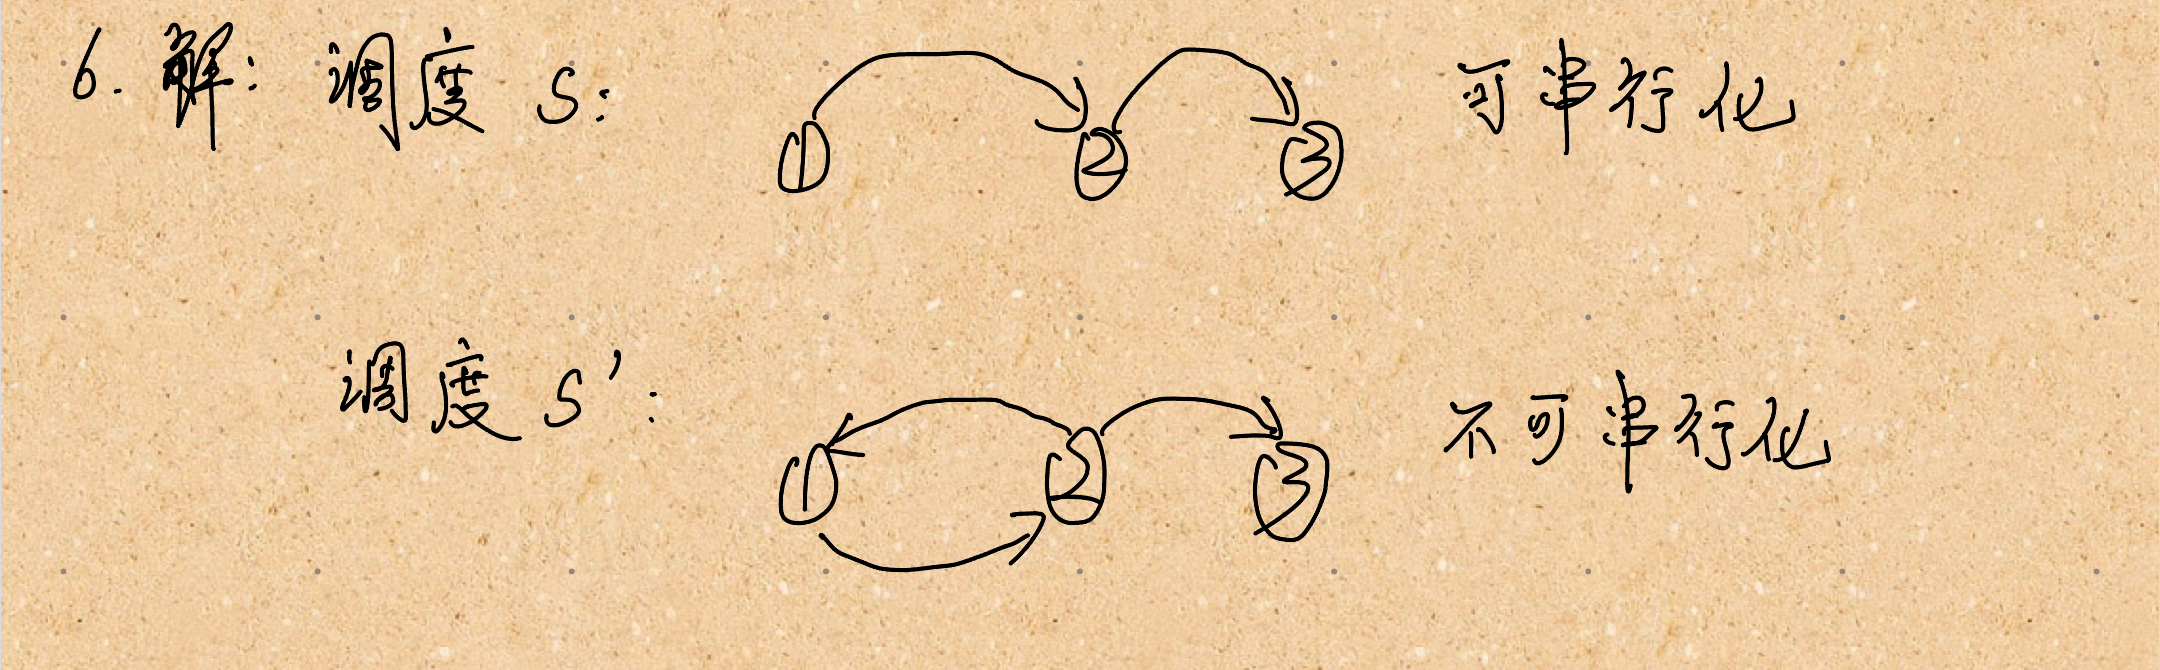 6. 解: 调度 S: ① ② ③ 可串行化
调度 S': ① ② ③ 不可串行化